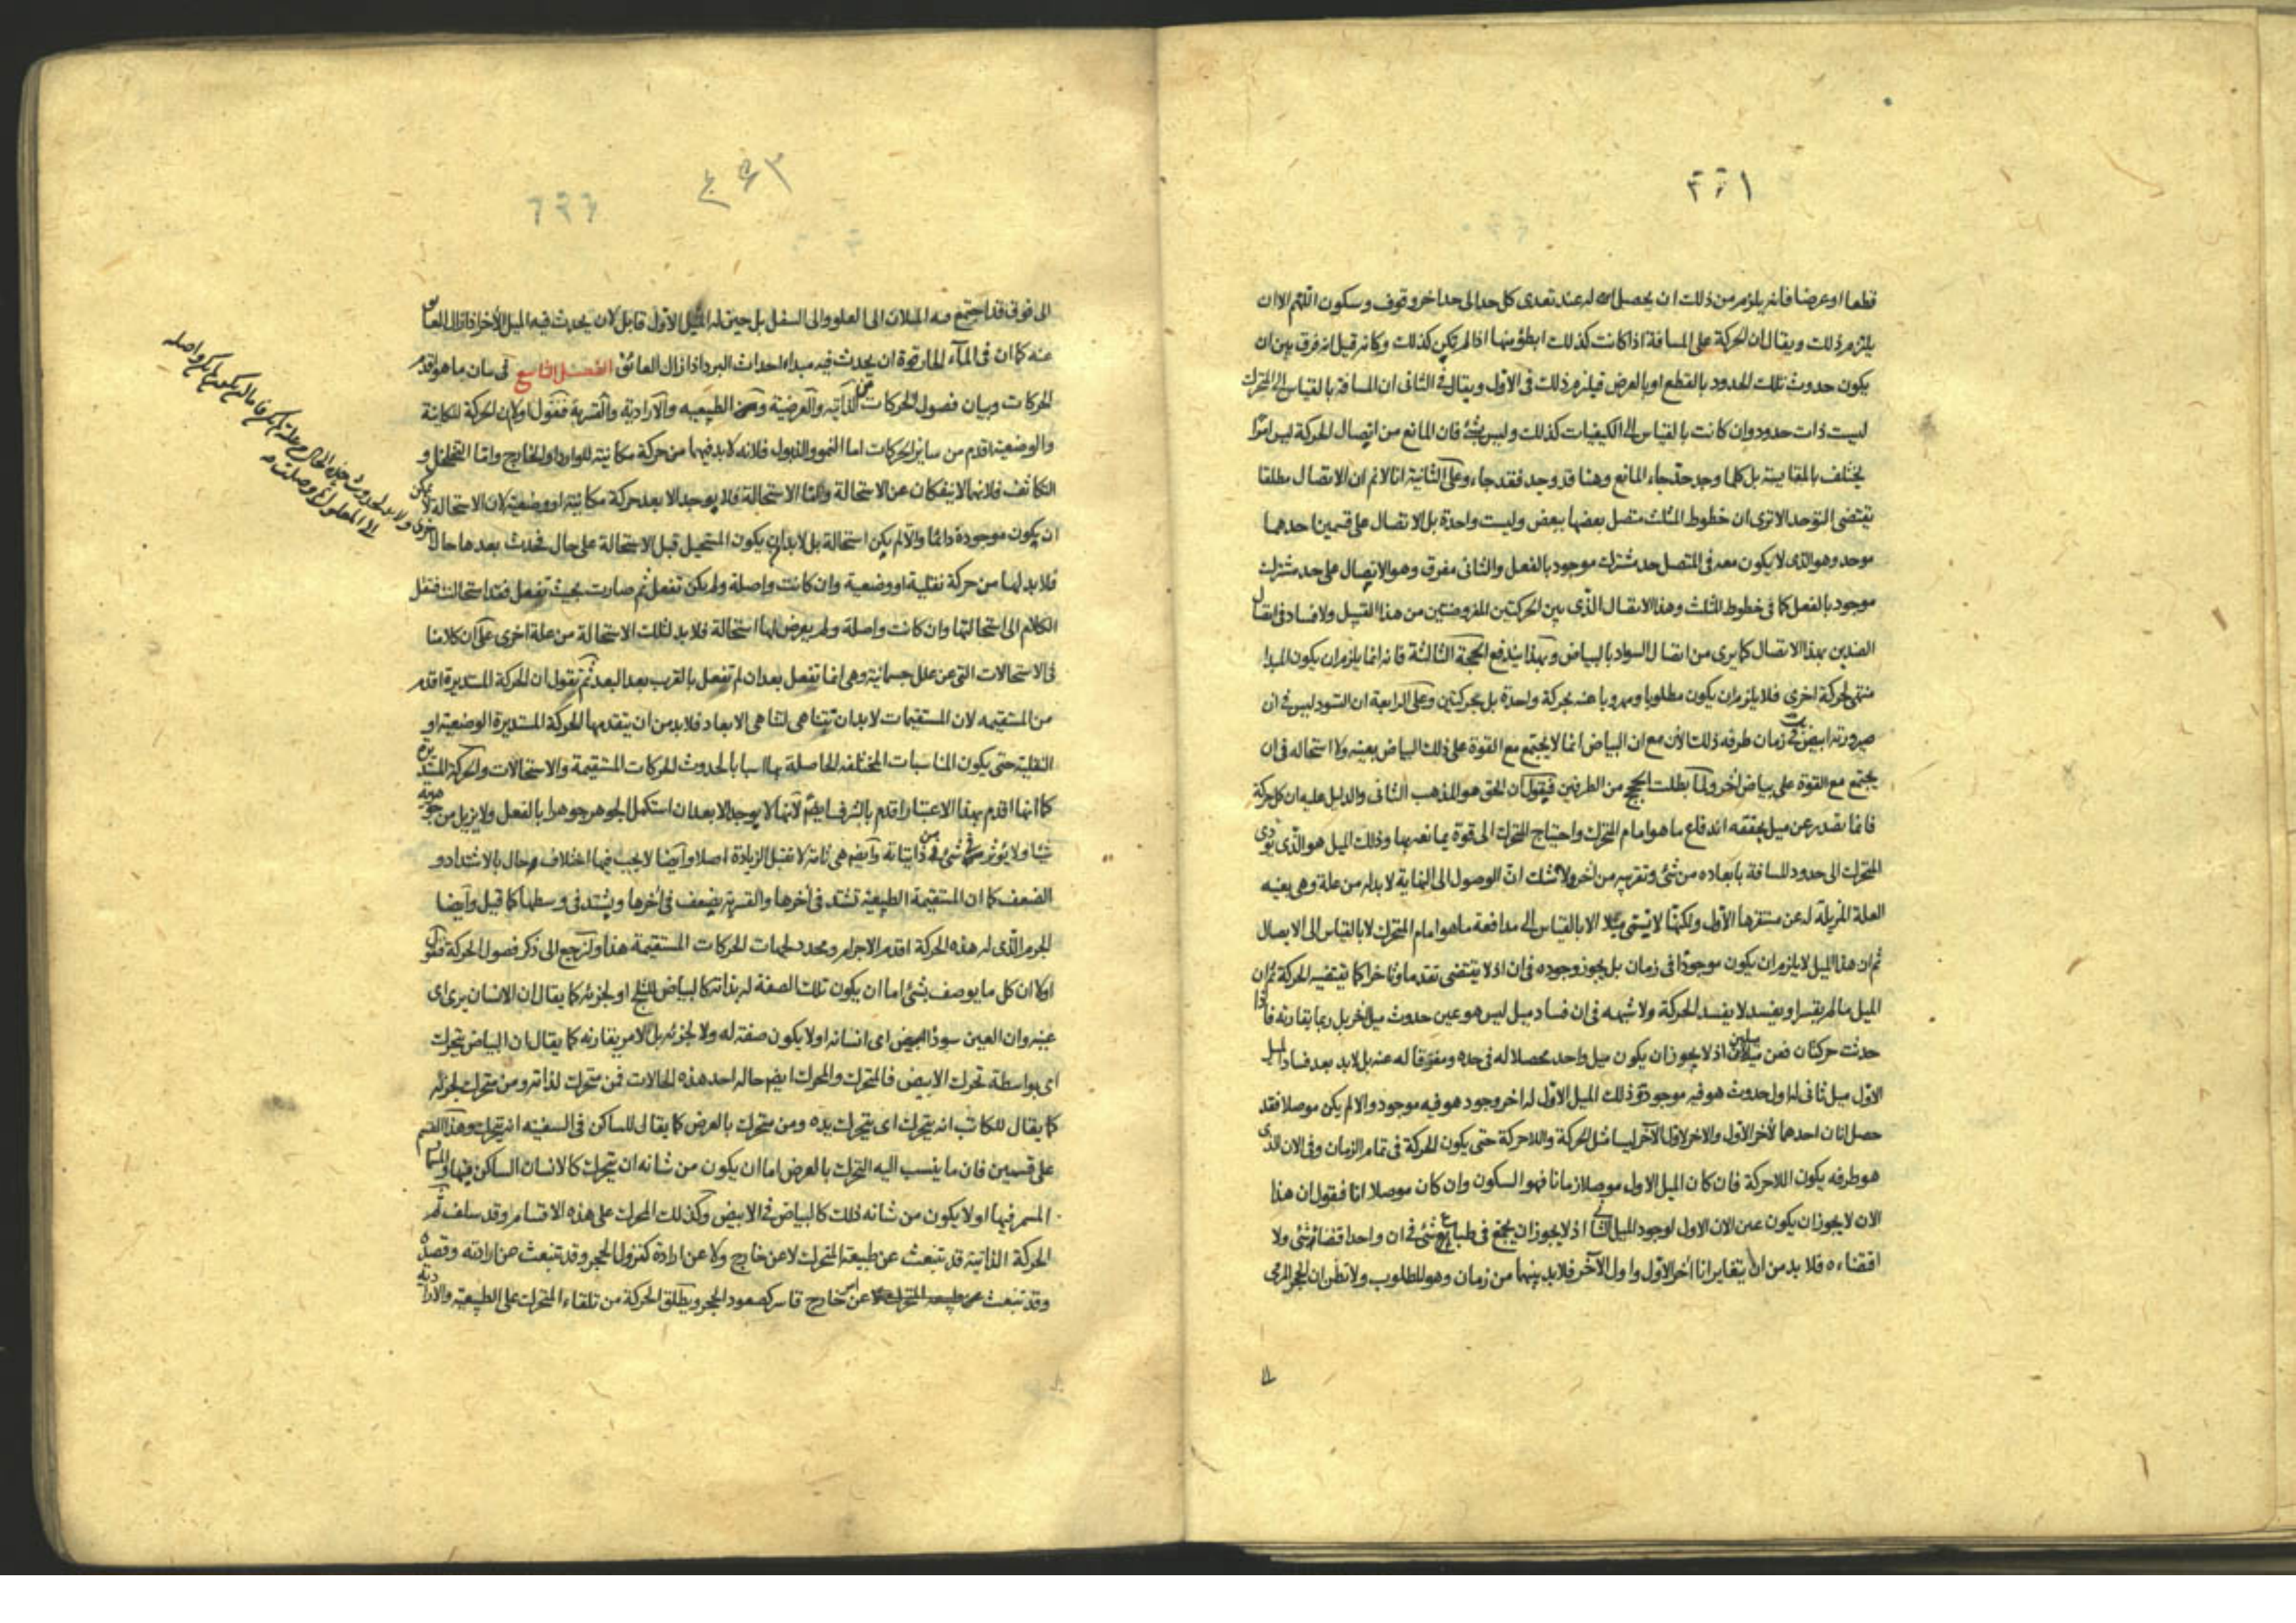 قطعا او عرضا فانه يلزم من ذلك ان يحصل له عند تعدى كل حد الى حد اخر وقوف وسكون اللهم الا ان
يلتزم ذلك ويقال ان الحركة على المسافة اذا كانت كذلك ابطؤ منها اذا لم تكن كذلك وكانه قيل انه فرق بين ان
يكون حدوث تلك الحدود بالقطع او بالعرض فيلزم ذلك فى الاول ويقال فى الثانى ان المسافة بالقياس الى المتحرك
ليست ذات حدود وان كانت بالقياس الى الكيفيات كذلك وليس بشئ فان المانع من اتصال الحركة ليس امرًا
يختلف بالمقايسة بل كلما وجد حد جاء المانع وهنا قد وجد فقد جاء وعلى الثانية انا لا نم ان الاتصال مطلقا
يقتضى التوحد الا ترى ان خطوط المثلث متصل بعضها ببعض وليست واحدة بل الاتصال على قسمين احدهما
موحد وهو الذى لا يكون معه فى المتصل حد مشترك موجود بالفعل والثانى مفرق وهو الاتصال على حد مشترك
موجود بالفعل كما فى خطوط المثلث وهذا الاتصال الذى بين الحركتين المفروضتين من هذا القبيل ولا فساد فى اتصال
الضدين بهذا الاتصال كما يرى من اتصال السواد بالبياض وبهذا يندفع الحجة الثالثة فانه انما يلزم ان يكون المبدا
منتهى لحركة اخرى فلا يلزم ان يكون مطلوبا ومهروبا عنه بحركة واحدة بل بحركتين وعلى الرابعة ان التسود ليس فى ان
صيرورته ابيض فى زمان طرفه ذلك الان مع ان البياض انما لا يجتمع مع القوة على ذلك البياض بعينه ولا استحاله فى ان
يجتمع مع القوة على بياض آخر ولما بطلت الحجج من الطرفين فيقول ان الحق هو المذهب الثانى والدليل عليه ان كل حركة
فانما تصدر عن ميل يحققه اندفاع ما هو امام المتحرك واحتياج المتحرك الى قوة يمانعه بها وذلك الميل هو الذى يؤدى
المتحرك الى حدود المسافة بابعاده من شئ وتقريبه من آخر ولا شك ان الوصول الى النهاية لا بد له من علة وهى بعينه
العلة المزيلة له عن مستقرها الاول ولكنها لا تسمى ميلا الا بالقياس الى مدافعة ما هو امام المتحرك لا بالقياس الى الايصال
ثم ان هذا الميل لا يلزم ان يكون موجودا فى زمان بل يجوز وجوده فى ان اذ لا يقتضى تقدما وتاخرا كما يقتضيه الحركة ثم ان
الميل ما لم يقسر او يفسد لا يفسد الحركة ولا شبهه فى ان فساد ميل ليس هو عين حدوث ميل اخر بل ربما يقارنه فاذا
حدثت حركتان فعن ميلين اذ لا يجوز ان يكون ميل واحد محصلا له فى حده ومفرقا له عنه بل لا بد بعد فساد الميل
الاول ميل ثانى له اول حدوث هو فيه موجود وذلك الميل الاول له اخر وجود هو فيه موجود والا لم يكن موصلا فقد
حصل انان احدهما لآخر الاول والاخر لاول الآخر ليسا مثل الحركة واللاحركة حتى يكون الحركة فى تمام الزمان وفى الان الذى
هو طرفه يكون اللاحركة فان كان الميل الاول موصلا زمانا فهو السكون وان كان موصلا انا فنقول ان هذا
الان لا يجوز ان يكون عين الان الاول لوجود الميل الثانى اذ لا يجوز ان يجتمع فى طباع شئ فى ان واحد اقتضاء شئ ولا
اقتضاءه فلا بد من ان يتغاير انا آخر الاول واول الآخر فلا بد بينهما من زمان وهو المطلوب ولا تظن ان الحجر المرمى
الى فوق قد اجتمع فيه الميلان الى العلو والى السفل بل حين له الميل الاول قابل لان يحدث فيه الميل الآخر اذا زال العائق
عنه كما ان فى المآء الحار قوة ان يحدث فيه مبداء احداث البرد اذا زال العائق الفصل التاسع فى بيان ما هو اقدم
الحركات وبيان فصول الحركات من الذاتيه والعرضية ومن الطبيعيه والارادية والقسرية فنقول اولا ان الحركة المكانية
والوضعية اقدم من سائر الحركات اما النمو والذبول فلانه لا بد فيهما من حركة مكانية للوارد او الخارج واما التخلخل و
التكاثف فلانها لا ينفكان عن الاستحالة واما الاستحالة فلا يوجد الا بعد حركة مكانية او وضعية لان الاستحالة لا يمكن
ان يكون موجودة دائما والا لم يكن استحالة بل لا بد ان يكون المستحيل قبل الاستحالة على حال فحدث بعدها حال
فلا بد لها من حركة نقلية او وضعية وان كانت واصلة ولم يكن تفعل ثم صارت بحيث تفعل فقد استحالت فننقل
الكلام الى استحالتها وان كانت واصلة ولم يعرض لها استحالة فلا بد لتلك الاستحالة من علة اخرى على ان كلامنا
فى الاستحالات التى عن علل جسمانية وهى انما تفعل بعد ان لم تفعل بالقرب بعد البعد ثم نقول ان الحركة المستديرة اقدم
من المستقيمه لان المستقيمات لا بد ان تتناهى لتناهى الابعاد فلا بد من ان يتقدمها الحركة المستديرة الوضعية او
النقلية حتى يكون المناسبات المختلفه الحاصلة بها اسبابا لحدوث الحركات المستقيمة والاستحالات والحركة المستديرة
كما انها اقدم بهذا الاعتبار اقدم بالشرف ايضا لانها لا يوجد الا بعد ان استكمل الجوهر جوهرا بالفعل ولا يزيل من جوهريته
شيئا ولا يؤثر فى شئ من ذاتياته وايضا هى تامة لا تقبل الزيادة اصلا وايضا لا يجب فيها اختلاف حال بالاشتداد و
الضعف كما ان المستقيمة الطبيعية تشتد فى آخرها والقسرية يضعف فى آخرها ويشتد فى وسطها كما قيل وايضا
الجرم الذى له هذه الحركة اقدم الاجرام ومحدد لجهات الحركات المستقيمة هذا ولنرجع الى ذكر فصول الحركة فنقول
اولا ان كل ما يوصف بشئ اما ان يكون تلك الصفة له بذاته كالبياض للثلج او لجزئه كما يقال ان الانسان يرى اى
عينه وان العين سودا ابيض اى انسانه او لا يكون صفته له ولا لجزئه بل لامر يقارنه كما يقال ان البياض يتحرك
اى بواسطة تحرك الابيض فالمتحرك والمحرك ايضا حاله احد هذه الحالات فمن متحرك لذاته ومن متحرك لجزئه
كما يقال للكاتب انه يتحرك اى يتحرك يده ومن متحرك بالعرض كما يقال للساكن فى السفينه انه يتحرك وهذا القسم
على قسمين فان ما ينسب اليه التحرك بالعرض اما ان يكون من شانه ان يتحرك كالانسان الساكن فيها والمسمار
المسمر فيها او لا يكون من شانه ذلك كالبياض فى الابيض وكذلك المحرك على هذه الاقسام وقد سلف ثم
الحركة الذاتية قد تنبعث عن طبيعة المتحرك لا عن خارج ولا عن ارادة كنزول الحجر وقد تنبعث عن ارادته وقصده
وقد تنبعث عن خارج قاسر كصعود الحجر ويطلق الحركة من تلقاء المتحرك على الطبيعية والارادية